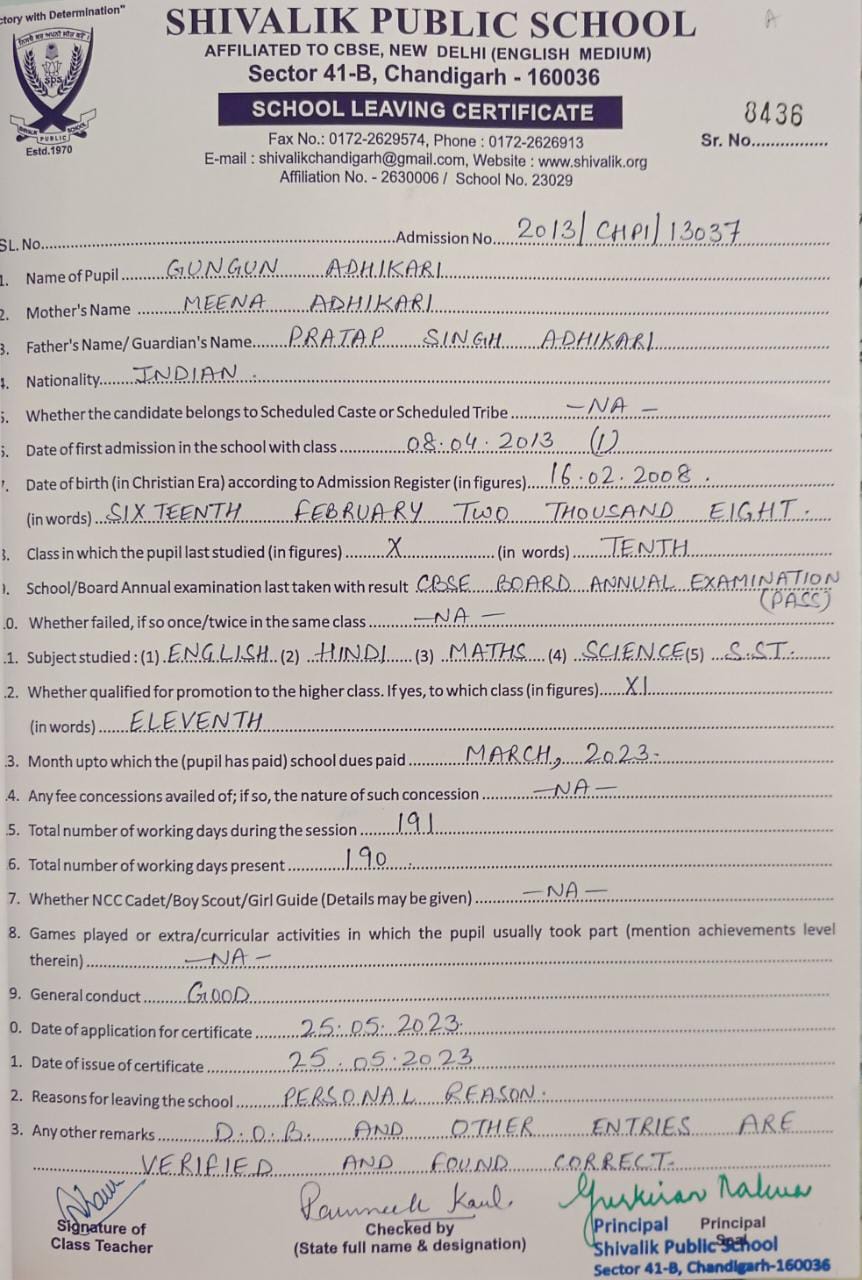 ctory with Determination"
SHIVALIK PUBLIC SCHOOL
AFFILIATED TO CBSE, NEW DELHI (ENGLISH MEDIUM)
Sector 41-B, Chandigarh - 160036
SCHOOL LEAVING CERTIFICATE
SPS
SHIVALIK PUBLIC SCHOOL
Estd.1970
Fax No.: 0172-2629574, Phone : 0172-2626913
E-mail : shivalikchandigarh@gmail.com, Website : www.shivalik.org
Affiliation No. - 2630006 / School No. 23029
8436
Sr. No...............
SL. No....................Admission No. 2013/CHPI/13037
1. Name of Pupil GUNGUN ADHIKARI
2. Mother's Name MEENA ADHIKARI
3. Father's Name/ Guardian's Name PRATAP SINGH ADHIKARI
4. Nationality INDIAN.
5. Whether the candidate belongs to Scheduled Caste or Scheduled Tribe -NA-
5. Date of first admission in the school with class 08.04.2013 (I)
7. Date of birth (in Christian Era) according to Admission Register (in figures) 16.02.2008.
(in words) SIXTEENTH FEBRUARY TWO THOUSAND EIGHT.
3. Class in which the pupil last studied (in figures) X (in words) TENTH
). School/Board Annual examination last taken with result CBSE BOARD ANNUAL EXAMINATION
(PASS)
.0. Whether failed, if so once/twice in the same class -NA-
.1. Subject studied : (1) ENGLISH (2) HINDI (3) MATHS (4) SCIENCE (5) S.ST.
.2. Whether qualified for promotion to the higher class. If yes, to which class (in figures) XI
(in words) ELEVENTH
.3. Month upto which the (pupil has paid) school dues paid MARCH, 2023-
.4. Any fee concessions availed of; if so, the nature of such concession -NA-
.5. Total number of working days during the session 191
.6. Total number of working days present 190
7. Whether NCC Cadet/Boy Scout/Girl Guide (Details may be given) -NA-
8. Games played or extra/curricular activities in which the pupil usually took part (mention achievements level
therein) -NA-
9. General conduct GOOD
0. Date of application for certificate 25.05.2023.
1. Date of issue of certificate 25.05.2023
2. Reasons for leaving the school PERSONAL REASON.
3. Any other remarks D.O.B. AND OTHER ENTRIES ARE
VERIFIED AND FOUND CORRECT.
Signature of
Class Teacher
Checked by
(State full name & designation)
Principal
Principal
Shivalik Public School
Sector 41-B, Chandigarh-160036